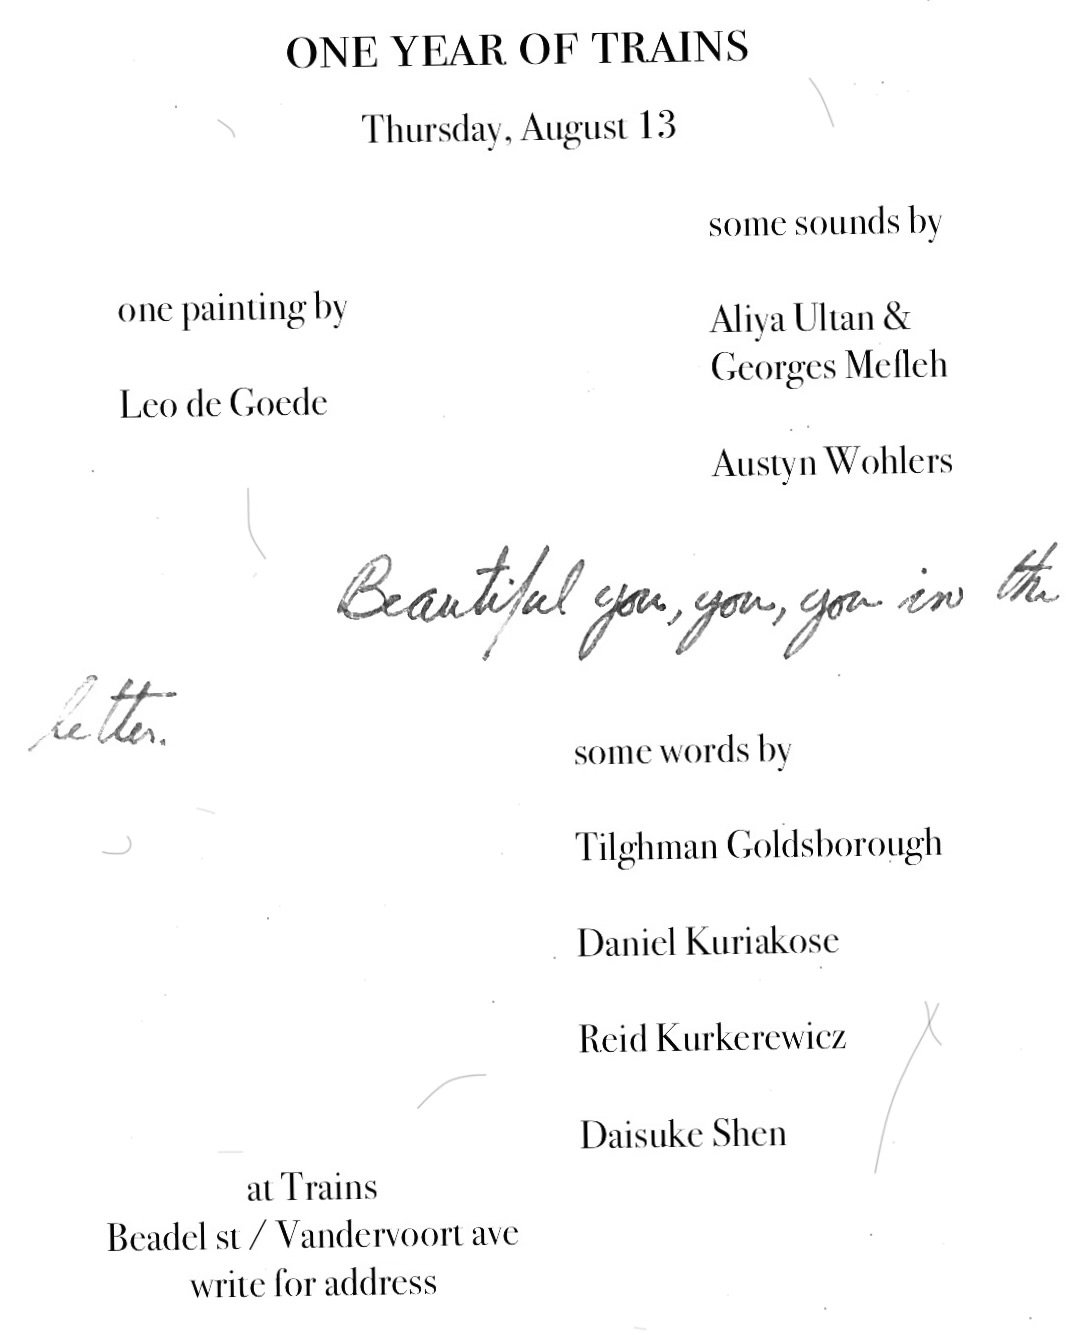 ONE YEAR OF TRAINS
Thursday, August 13
some sounds by
one painting by
Aliya Ultan &
Georges Mefleh
Leo de Goede
Austyn Wohlers
Beautiful you, you, you in the
letter.
some words by
Tilghman Goldsborough
Daniel Kuriakose
Reid Kurkerewicz
Daisuke Shen
at Trains
Beadel st / Vandervoort ave
write for address